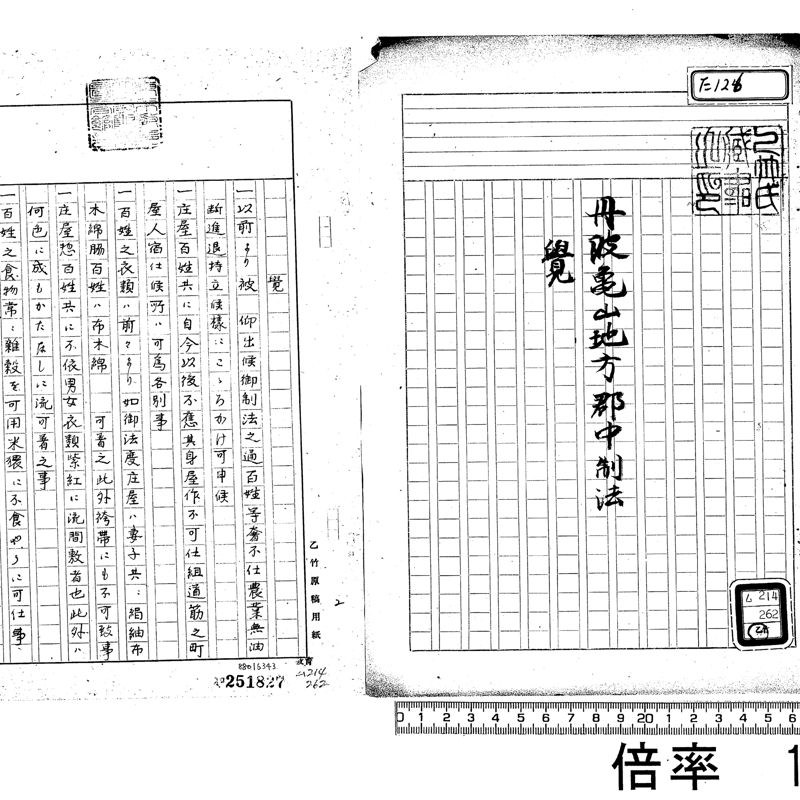 丹波亀山地方郡中制法
覺
モ124
ム 214
262
覺
一以前より被 仰出候御制法之通百姓等奢不仕農業無油
断進退持立候様にこゝろかけ可申候
一庄屋百姓共に自今以後不應其身屋作不可仕組道筋之町
屋人宿仕候所ハ可為各別事
一百姓之衣類ハ前々より如御法度庄屋ハ妻子共ニ絹紬布
木綿脇百姓ハ布木綿 可着之此外袴帯にも不可致事
一庄屋惣百姓共に不依男女衣類紫紅に流間敷者也此外ハ
何色に成もかたなしに流可着之事
一百姓之食物常ニ雜穀を可用米猥に不食やうに可仕事
乙竹原稿用紙
2
88015343
251827
教育
ム214
262
0 1 2 3 4 5 6 7 8 9 20 1 2 3 4 5 6
倍率 1